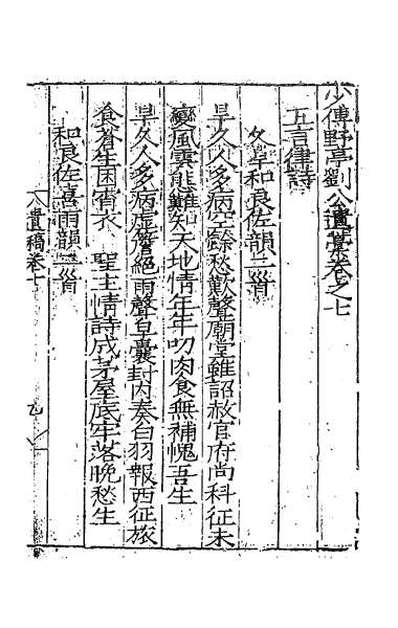 少傅野亭劉公遺藁卷之七
五言律詩
久旱和良佐韻二首
旱久人多病空餘愁歎聲廟堂雖詔赦官府尚科征未
變風雲態難知天地情年年叨肉食無補愧吾生
旱久人多病虛簷絕雨聲皂囊封內奏白羽報西征旅
食蒼生困宵衣 聖主情詩成茅屋底牢落晚愁生
和良佐喜雨韻二首
遺稿卷七